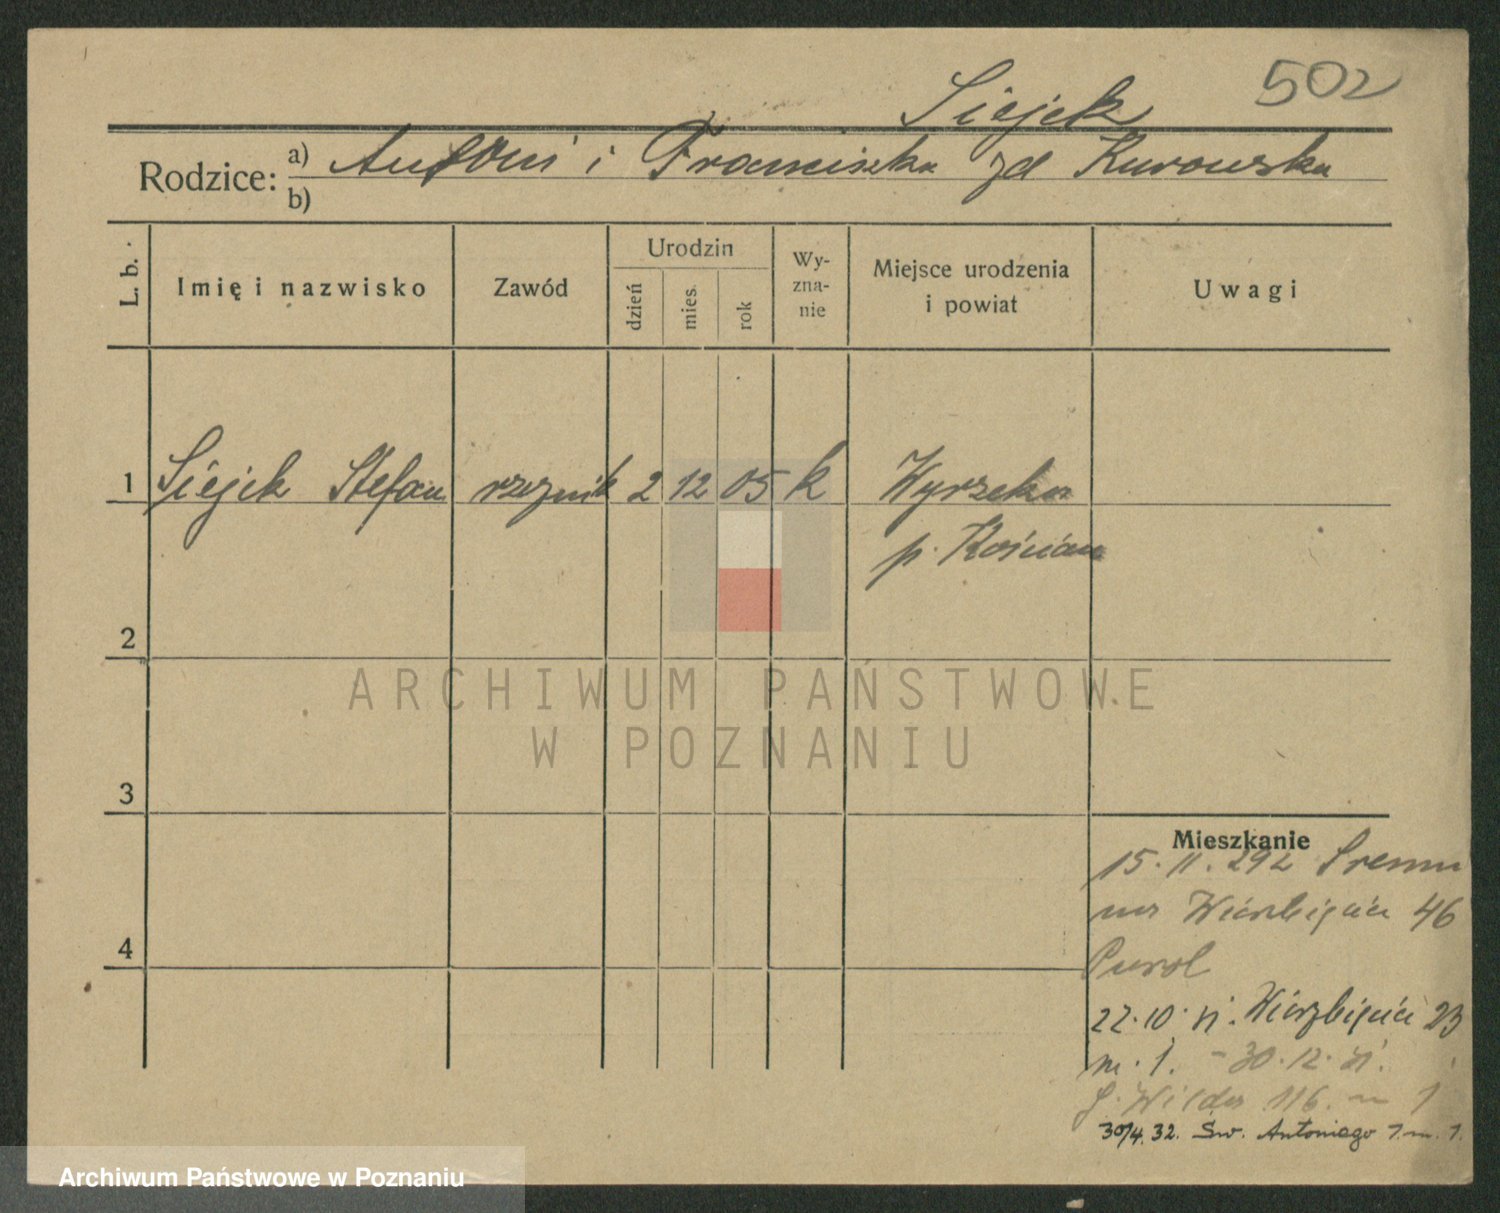 502
Siejek
Rodzice: a) Antoni i Franciszka zd Kurowska
b)
L. b. Imię i nazwisko Zawód Urodzin dzień mies. rok Wy-zna-nie Miejsce urodzenia i powiat Uwagi
1 Siejek Stefan rzeznik 2 12 05 k Wyrzeka
p. Kościan
2
ARCHIWUM PAŃSTWOWE
W POZNANIU
3
Mieszkanie
15.11.29 z Sremu
na Wierzbięcice 46
4
22.10. Wierzbięcice 23
m. 1. - 30.12.31.
g. Wilda 116. m 1
30/4.32. Św. Antoniego 7. m. 1.
Archiwum Państwowe w Poznaniu